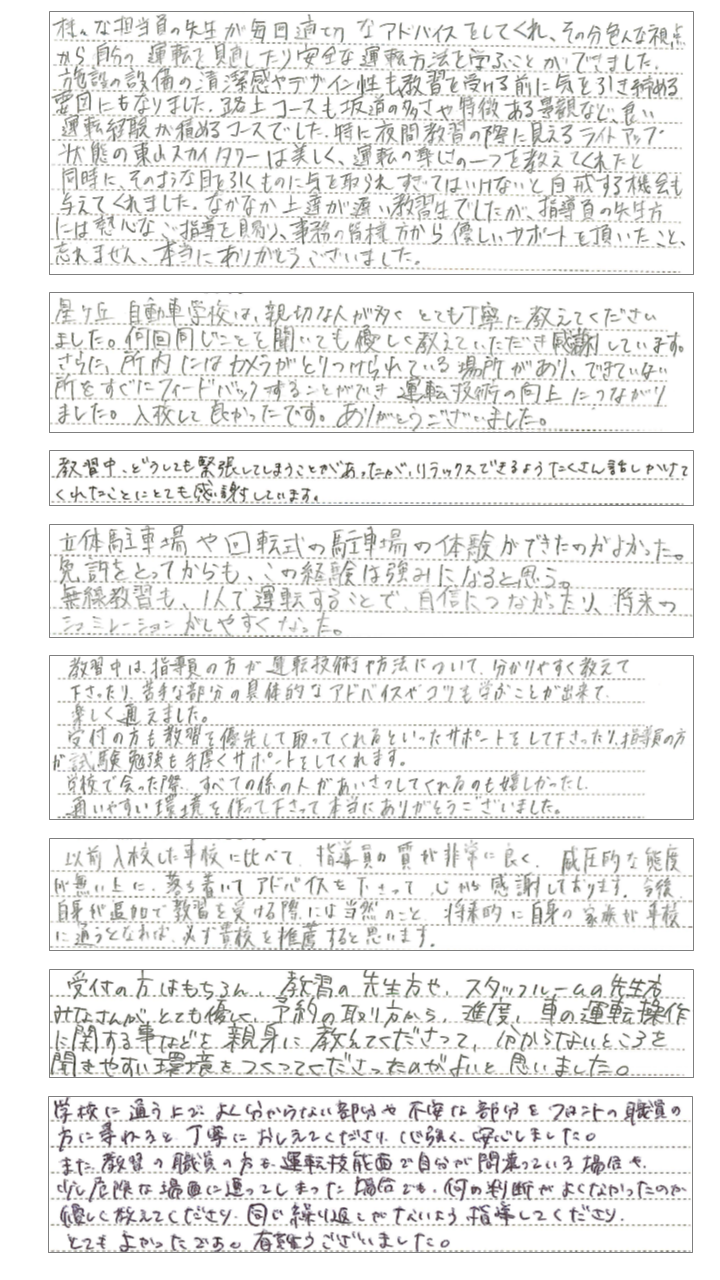 様々な担当員の先生が毎回適切なアドバイスをしてくれ、その分色んな視点
から自分の運転を見直したり安全な運転方法を学ぶことができました。
施設の設備の清潔感やデザイン性も教習を受ける前に気を引き締める
要因にもなりました。路上コースも坂道の多さや特徴ある景観など、良い
運転経験が積めるコースでした。特に夜間教習の際に見えるライトアップ
状態の東山スカイタワーは美しく、運転の楽しさの一つを教えてくれたと
同時に、そのような目を引くものに気を取られすぎてはいけないと自戒する機会も
与えてくれました。なかなか上達が遅い教習生でしたが、指導員の先生方
には熱心なご指導を賜り、事務の皆様方から優しいサポートを頂いたこと、
忘れません、本当にありがとうございました。
星ヶ丘自動車学校は、親切な人が多くとても丁寧に教えてください
ました。何回同じことを聞いても優しく教えていただき感謝しています。
さらに、所内にはカメラがとりつけられている場所があり、できていない
所をすぐにフィードバックすることができ運転技術の向上につながり
ました。入校して良かったです。ありがとうございました。
教習中、どうしても緊張してしまうことがあったが、リラックスできるようたくさん話しかけて
くれたことにとても感謝しています。
立体駐車場や回転式の駐車場の体験ができたのがよかった。
免許をとってからも、この経験は強みになると思う。
無線教習も、1人で運転することで、自信につながったり、将来の
シミュレーションがしやすくなった。
教習中は、指導員の方が運転技術や方法について、分かりやすく教えて
下さったり、苦手な部分の具体的なアドバイスやコツも学ぶことが出来て、
楽しく通えました。
受付の方も教習を優先して取ってくれるといったサポートをして下さったり、指導員の方
が試験勉強も手厚くサポートをしてくれます。
学校で会った際、すべての係の人があいさつしてくれるのも嬉しかったし、
通いやすい環境を作って下さって本当にありがとうございました。
以前入校した車校に比べて、指導員の質が非常に良く、威圧的な態度
が無い上に、落ち着いてアドバイスを下さって、心から感謝しております。今後
自身が追加で教習を受ける際には当然のこと、将来的に自身の家族が車校
に通うとなれば、必ず貴校を推薦すると思います。
受付の方はもちろん、教習の先生方や、スタッフルームの先生方
みなさんが、とても優しく、予約の取り方から、進度、車の運転操作
に関する事などを親身に教えてくださって、分からないところを
聞きやすい環境をつくってくださったのがよいと思いました。
学校に通う上で、よく分からない部分や不安な部分をフロントの職員の
方に尋ねると丁寧におしえてくださり、心強く、安心しました。
また、教習の職員の方も、運転技能面で自分が間違っている場合や、
少し危険な場面に遭ってしまった場合でも、何の判断がよくなかったのか
優しく教えてくださり、同じ繰り返しがないよう指導してくださり、
とてもよかったです。有難うございました。